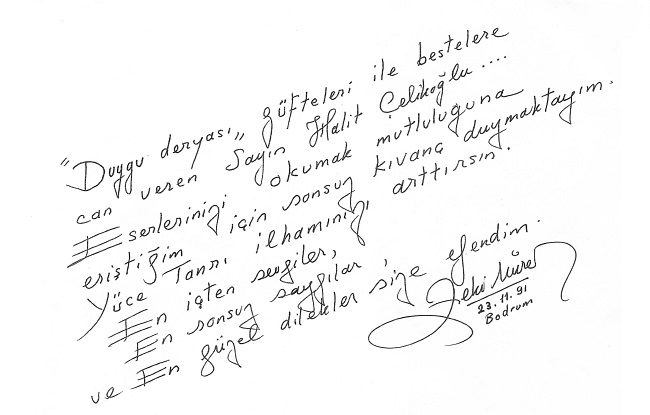 "Duygu deryası,, güfteleri ile bestelere
can veren Sayın Halit Çelikoğlu ....
Eserlerinizi okumak mutluluğuna
eriştiğim için sonsuz kıvanç duymaktayım.
Yüce Tanrı ilhamınızı arttırsın.
En içten sevgiler,
En sonsuz saygılar,
ve En güzel dilekler size efendim.
Zeki Müren
23.11.91
Bodrum